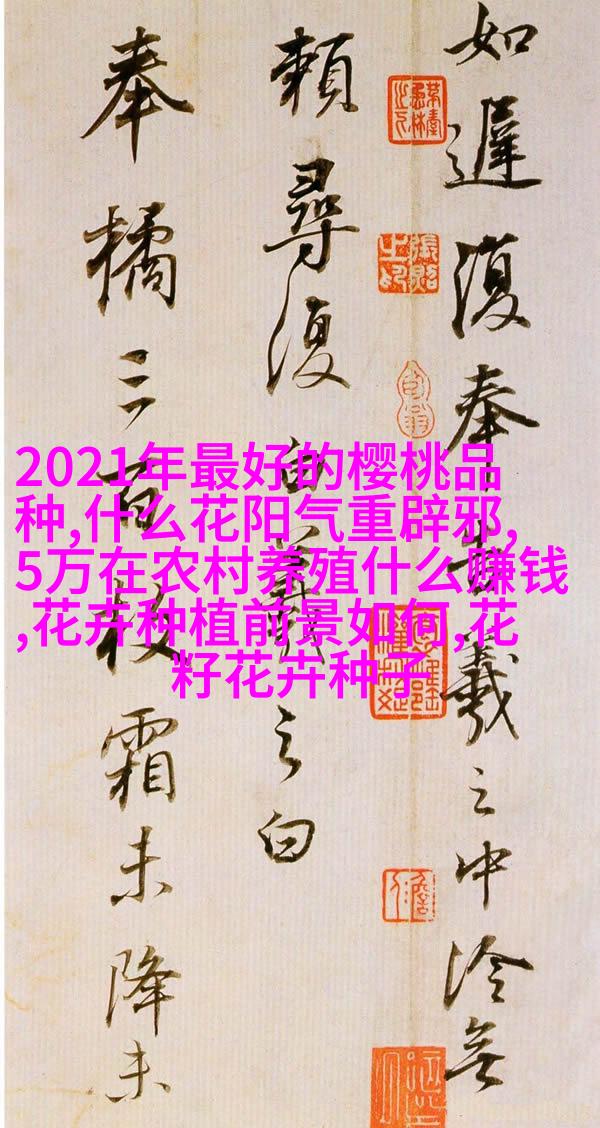 如遲復奉告羲之中冷無
賴尋復白羲之白
奉橘三百枚霜未降未
2021年最好的樱桃品
种,什么花阳气重辟邪,
5万在农村养殖什么赚钱
,花卉种植前景如何,花
籽花卉种子